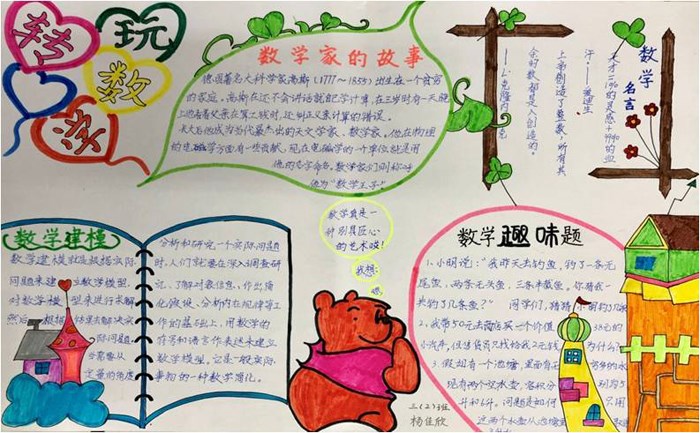 玩
转
数
学
数学家的故事
德国著名大科学家高斯(1777～1855)出生在一个贫穷
的家庭。高斯在还不会讲话就自己学计算,在三岁时有一天晚
上他看着父亲在算工钱时,还纠正父亲计算的错误。
长大后他成为当代最杰出的天文学家、数学家。他在物理
的电磁学方面有一些贡献,现在电磁学的一个单位就是用
他的名字命名。数学家们则称呼
他为“数学王子”
数学
名言
天才=1%的灵感+99%的血
汗。——爱迪生
上帝创造了整数,所有其
余的数都是人创造的。
——L·克隆内克
数学建模
数学建模就是根据实际
问题来建立数学模型,
对数学模型来进行求解
然后根据结果去解决实
际问题。
当需要从
定量的角度
分析和研究一个实际问题
时,人们就要在深入调查研
究、了解对象信息、作出简
化假设、分析内在规律等工
作的基础上,用数学的
符号和语言作表述来建立
数学模型,它是一般实际
事物的一种数学简化。
数学真是一
种别具匠心
的艺术哦!
我想:
嗯,
三(2)班
杨佳欣
数学趣味题
1、小明说:“我昨天去钓鱼,钓了一条无
尾鱼,两条无头鱼,三条半截鱼。你猜我一
共钓了几条鱼?” 同学们,猜猜小明钓了几条
2、我带50元去商店买一个价值38元的
小汽车,但售货员只找给我2元钱 为什么
3、假如有一个池塘,里面有无穷多的水
现有两个空水壶,容积分别为5
升和6升。问题是如何 用
这两个水壶从池塘里